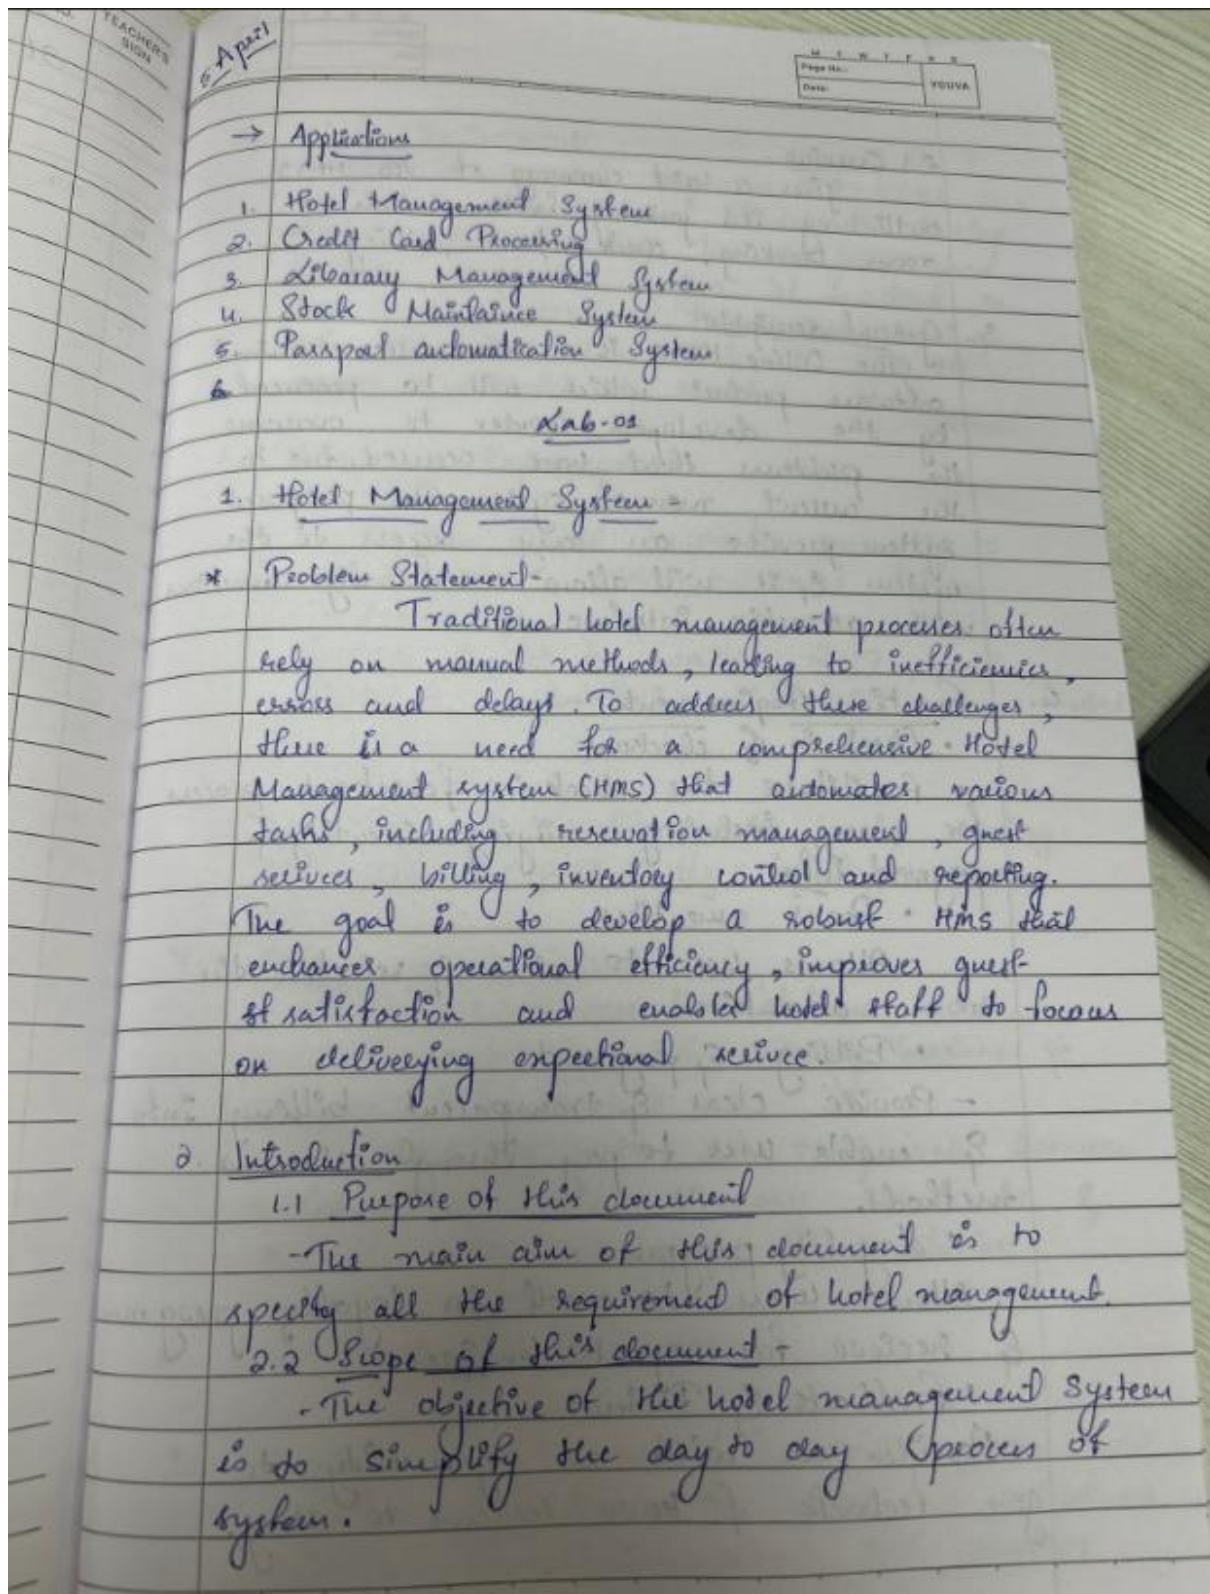 TEACHER'S
SIGN
5 April
M T W T F S S
Page No.:
Date:
YOUVA
→ Applications
1. Hotel Management System
2. Credit Card Processing
3. Libarary Management System
4. Stock Maintaince System
5. Passport automatication System
6
Lab-01
1. Hotel Management System -
* Problem Statement-
Traditional hotel management processes often
rely on manual methods, leading to inefficiencies,
errors and delays. To address these challenges,
there is a need for a comprehensive Hotel
Management system (HMS) that automates various
tasks, including reservation management, guest
serivces, billing, inventory control and reporting.
The goal is to develop a robust HMS that
enchances operational efficiency, improves guest-
st satisfaction and enables hotel staff to focous
on deliverying expectional serivce.
2. Introduction
1.1 Purpose of this document
-The main aim of this document is to
specify all the requirement of hotel management.
2.2 Scope of this document -
-The objective of the hotel management System
is to simplify the day to day process of
system.